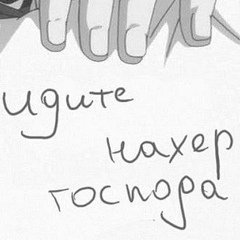 идите
нахер
господа